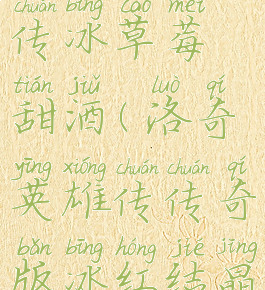 chuán bīng cǎo méi
传冰草莓
tián jiǔ luò qí
甜酒(洛奇
yīng xióng chuán chuán qí
英雄传传奇
bǎn bīng hóng jié jīng
版冰红结晶